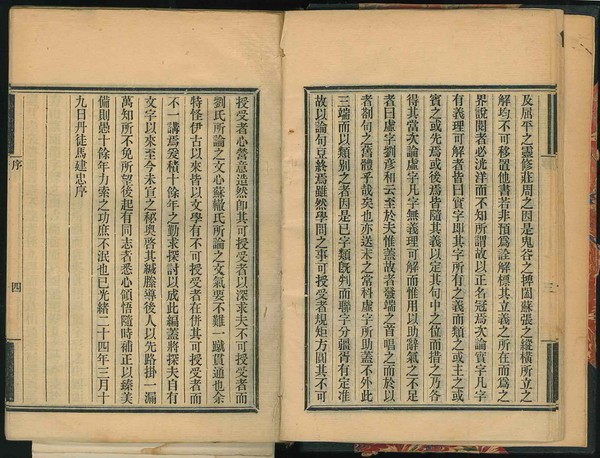 及屈平之靈修莊周之因是鬼谷之捭闔蘇張之縱橫所立之
解均不可移置他書若非預爲詮解標其立義之所在而爲之
界說閱者必洸洋而不知所謂故以正名冠焉次論實字凡字
有義理可解者皆曰實字即其字所有之義而類之或主之或
賓之或先焉或後焉皆隨其義以定其句中之位而措之乃各
得其當次論虛字凡字無義理可解而惟用以助辭氣之不足
者曰虛字劉彥和云至於夫惟蓋故者發端之首唱之而於以
者劄句之舊體乎哉矣也亦送末之常科虛字所助蓋不外此
三端而以類別之者因是已字類旣判而聯字分疆胥有定準
故以論句豆終焉雖然學問之事可授受者規矩方圓其不可
三
授受者心營意造然卽其可授受者以深求夫不可授受者而
劉氏所論之文心蘇轍氏所論之文氣要不難一蹴貫通也余
特怪伊古以來皆以文學有不可授受者在併其可授受者而
不一講焉爰積十餘年之勤求探討以成此編蓋將探夫自有
文字以來至今未宣之秘奧啓其緘縢導後人以先路掛一漏
萬知所不免所望後起有同志者悉心領悟隨時補正以臻美
備則愚十餘年力索之功庶不泯也已光緒二十四年三月十
九日丹徒馬建忠序
序
四